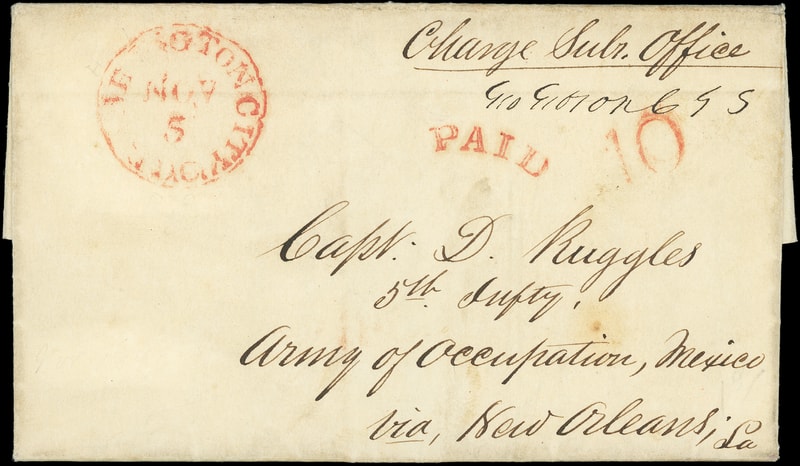 WASHINGTON CITY D.C.
NOV
5
Charge Subr. Office
PAID 10
Capt. D. Ruggles
5th Infty.
Army of Occupation, Mexico
via, New Orleans, La